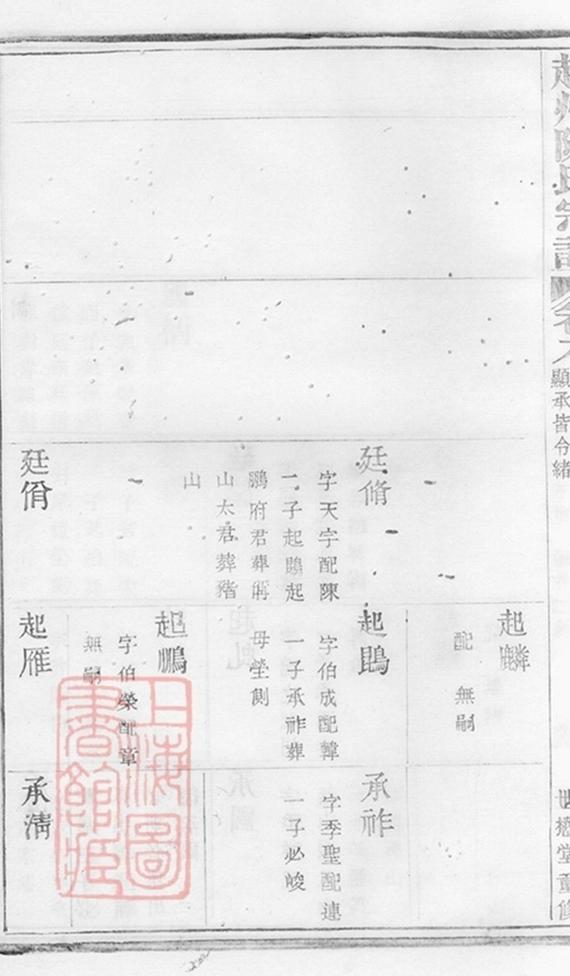 陳氏宗譜
顯承皆令緒
世懋堂重修
起麟
配
無嗣
廷脩
字天宇配陳
二子起鵾起
鵬府君葬蔣
山太君葬豬
山
起鵾
字伯成配韓
一子承祚葬
母塋側
承祚
字季聖配連
一子必峻
起鵬
字伯榮配章
無嗣
廷佾
起雁
承淸
上海圖
書館藏